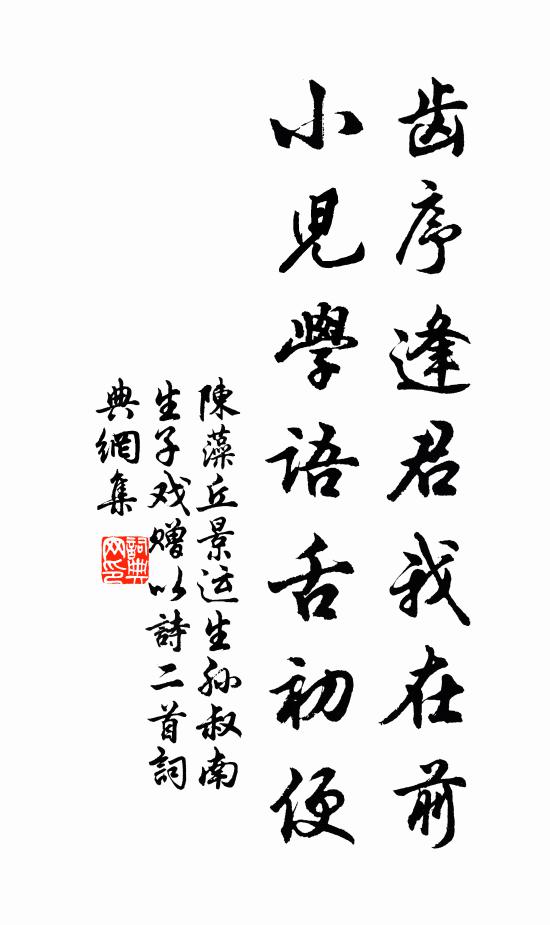 齿序逢君我在前
小児學語舌初便
陳藻丘景运生孙叔南
生子戏赠以詩二首詞
典網集
詞典
网